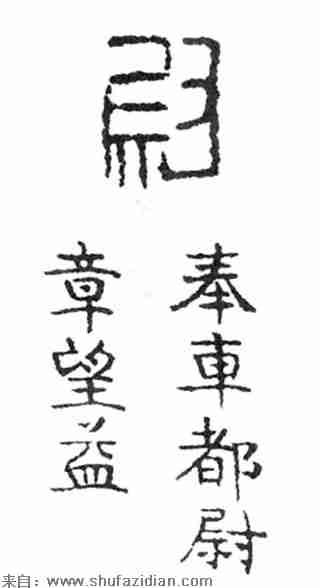 奉車都尉
章望益
来自：www.shufazidian.com